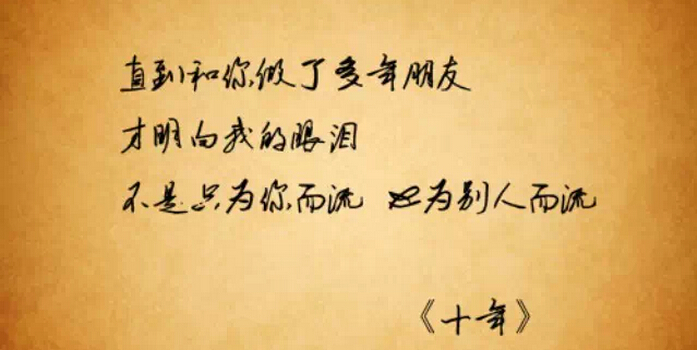 直到和你做了多年朋友
才明白我的眼泪
不是只为你而流 也为别人而流
《十年》